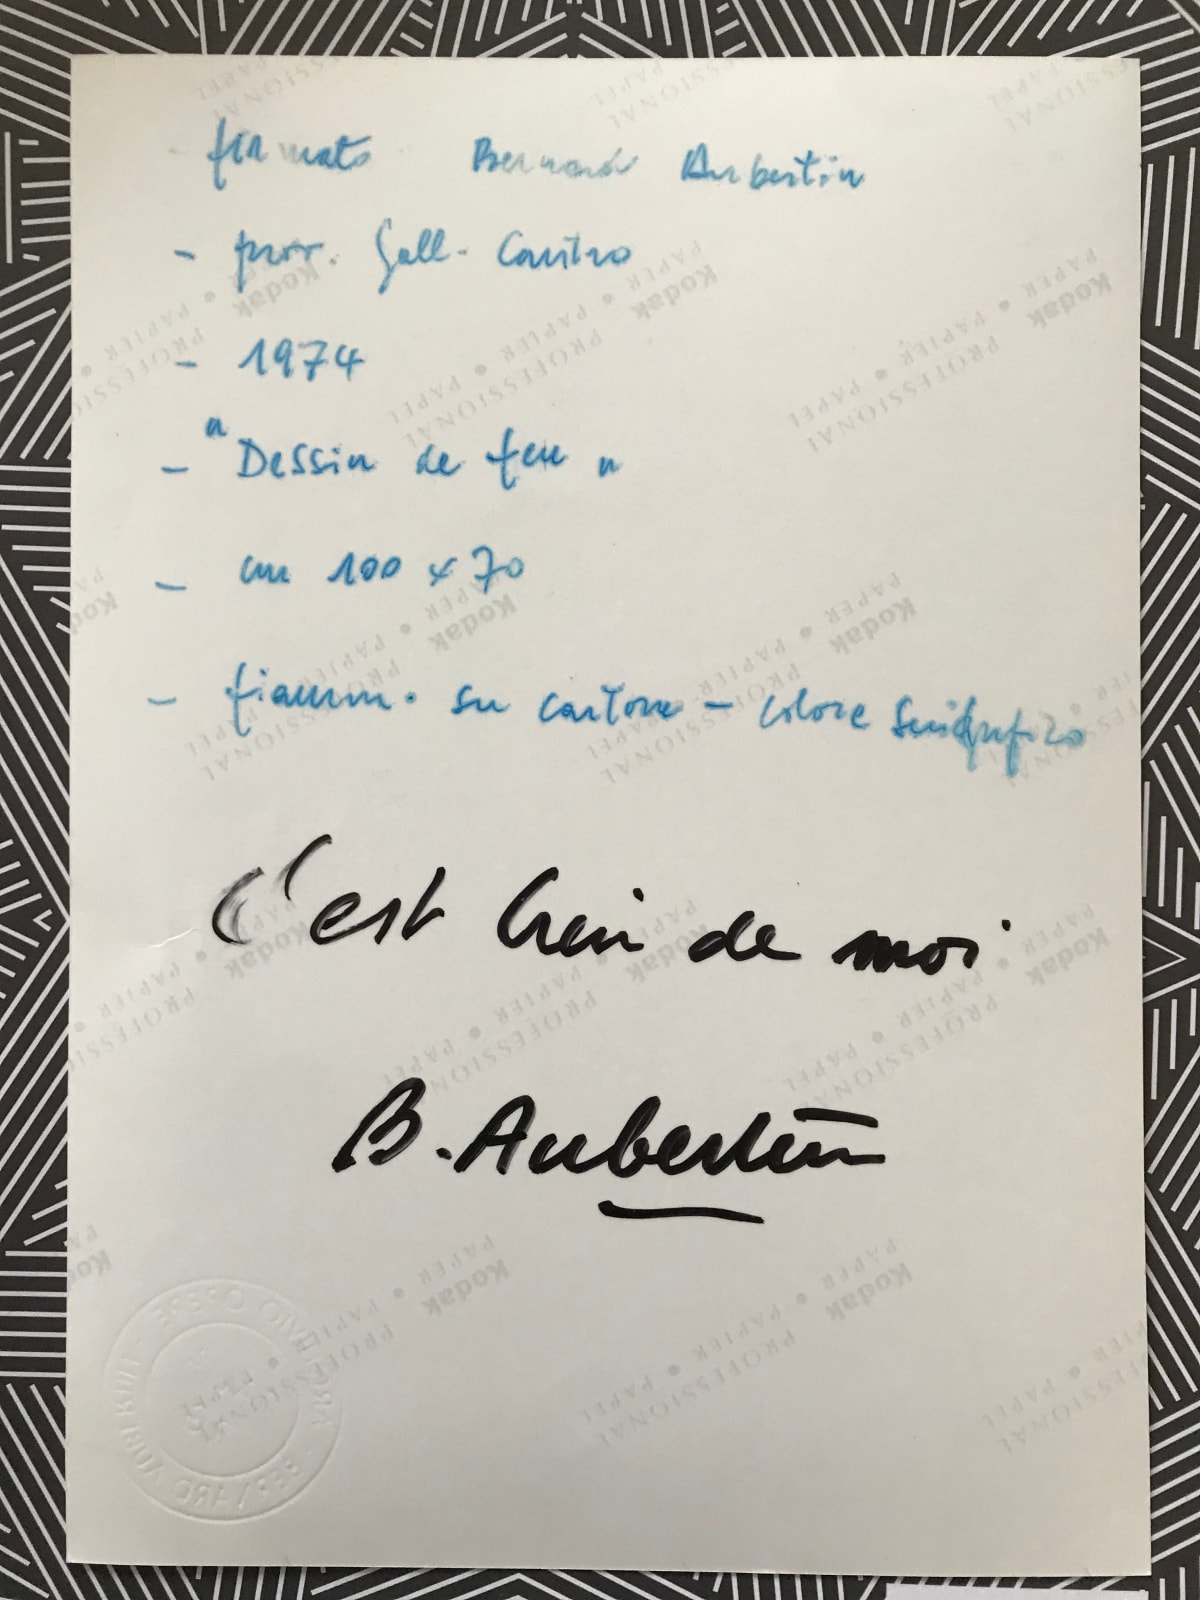 - firmato Bernard Aubertin
- prov. Gall. Centro
- 1974
- "Dessin de feu"
- cm 100 x 70
- fiamm. su cartone - colore
C'est bien de moi
B. Aubertin
Kodak
PROFESSIONAL
PAPER • PAPIER • PAPEL
ARCHIVIO OPERE
BERNARD AUBERTIN